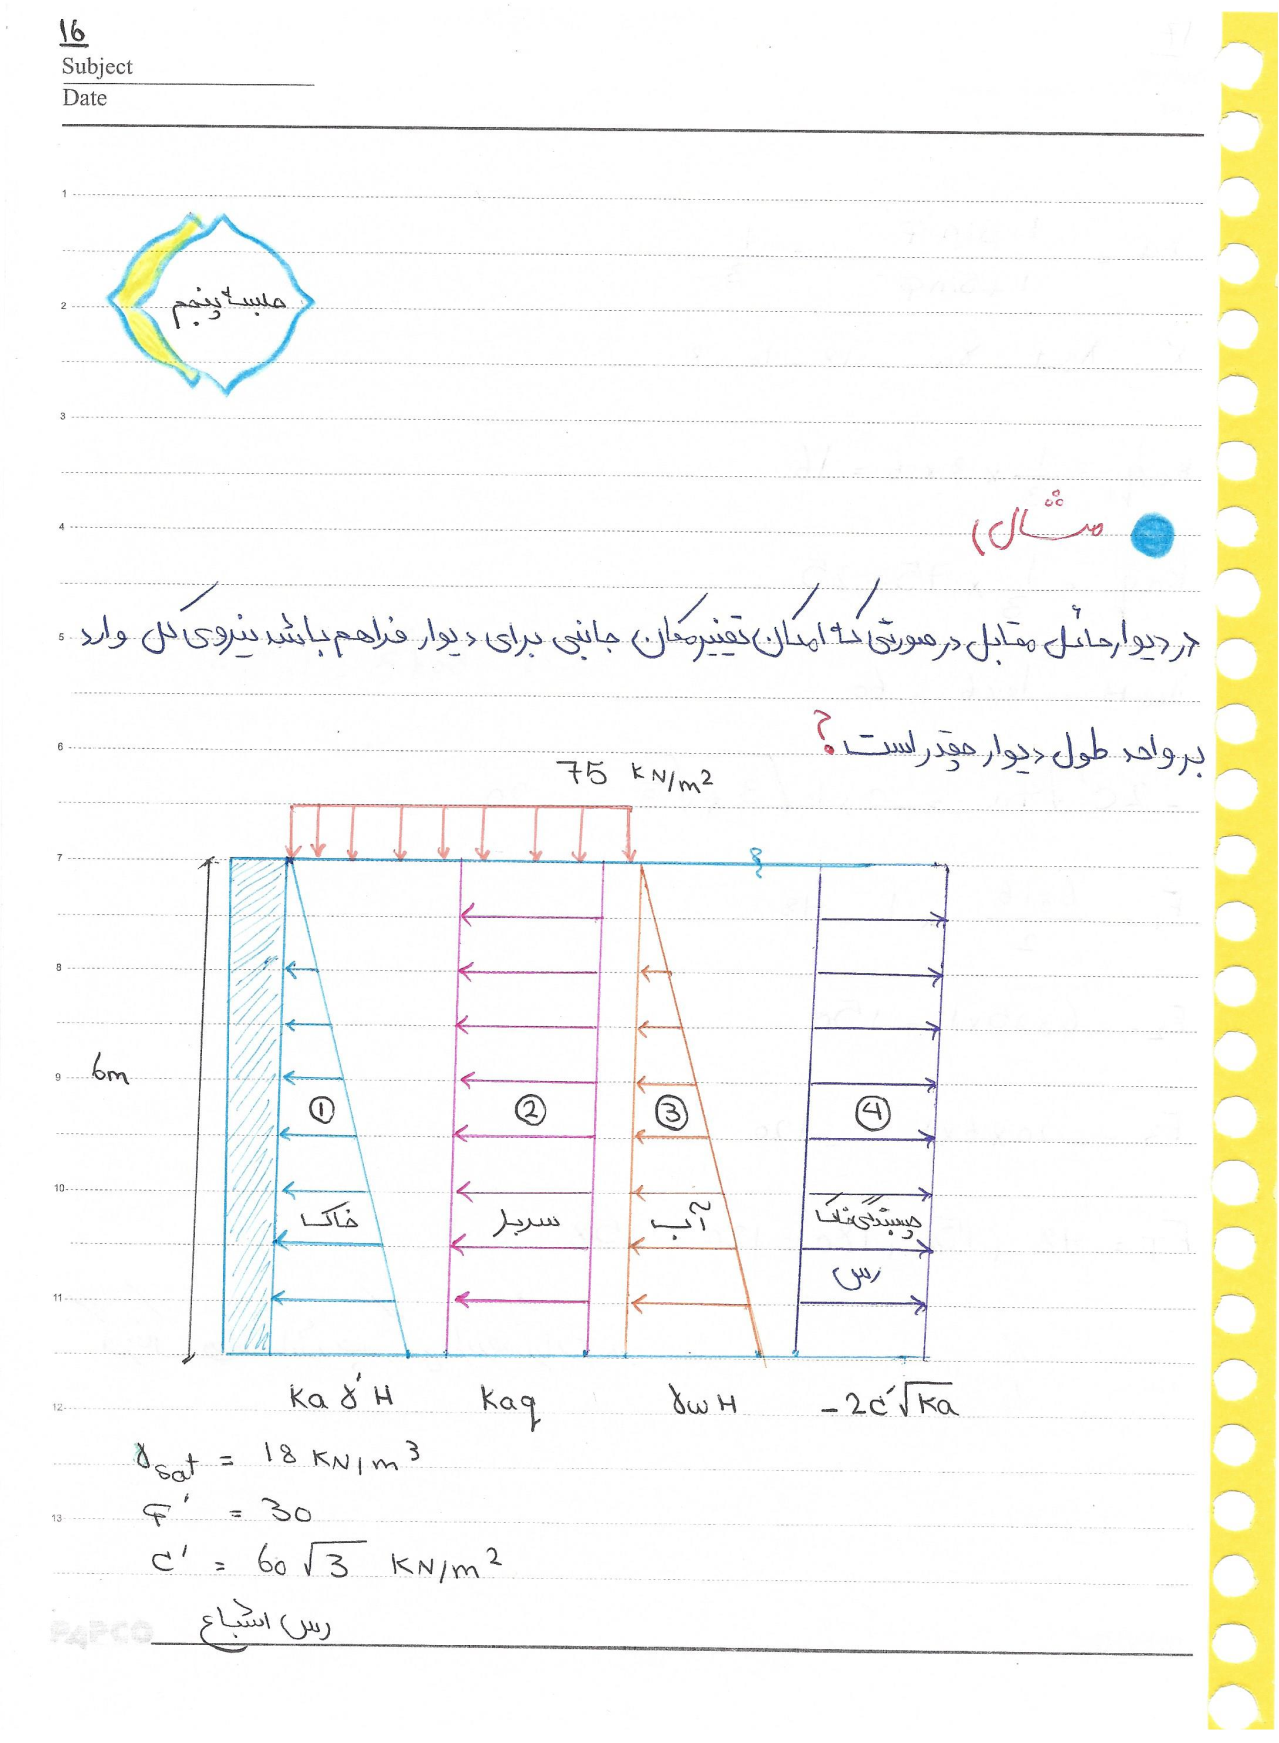 16
Subject
Date
جلسه پنجم
مثال)
در دیوار حائل مقابل در صورتی که امکان تغییر مکان جانبی برای دیوار فراهم باشد نیروی کل وارد
بر واحد طول دیوار چقدر است؟
75 KN/m²
1
2
3
4
5
6
7
8
9
10
11
12
13
6m
① ② ③ ④
خاک سربار آب چسبندگی خاک
رس
Ka γ' H Kaq γw H -2c'√Ka
γsat = 18 KN/m³
φ' = 30
c' = 60√3 KN/m²
رس اشباع
PAPCO